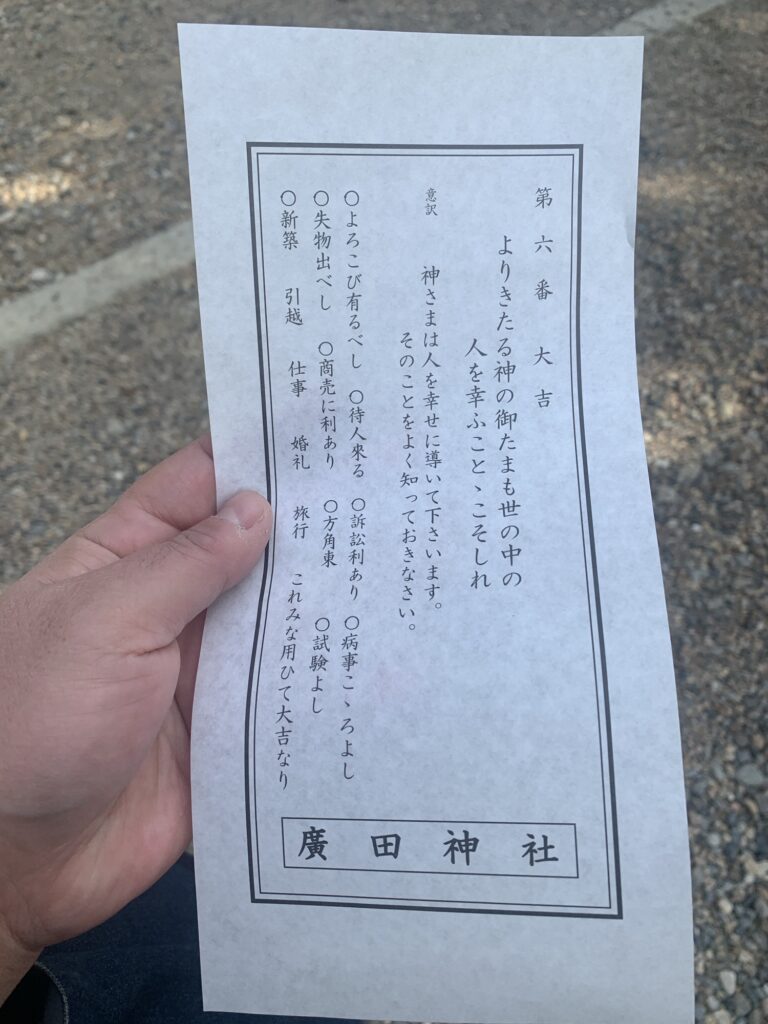 第六番 大吉
よりきたる神の御たまも世の中の
人を幸ふことヽこそしれ
意訳
神さまは人を幸せに導いて下さいます。
そのことをよく知っておきなさい。
○よろこび有るべし ○待人來る ○訴訟利あり ○病事こヽろよし
○失物出べし ○商売に利あり ○方角東 ○試験よし
○新築 引越 仕事 婚礼 旅行 これみな用ひて大吉なり
廣田神社